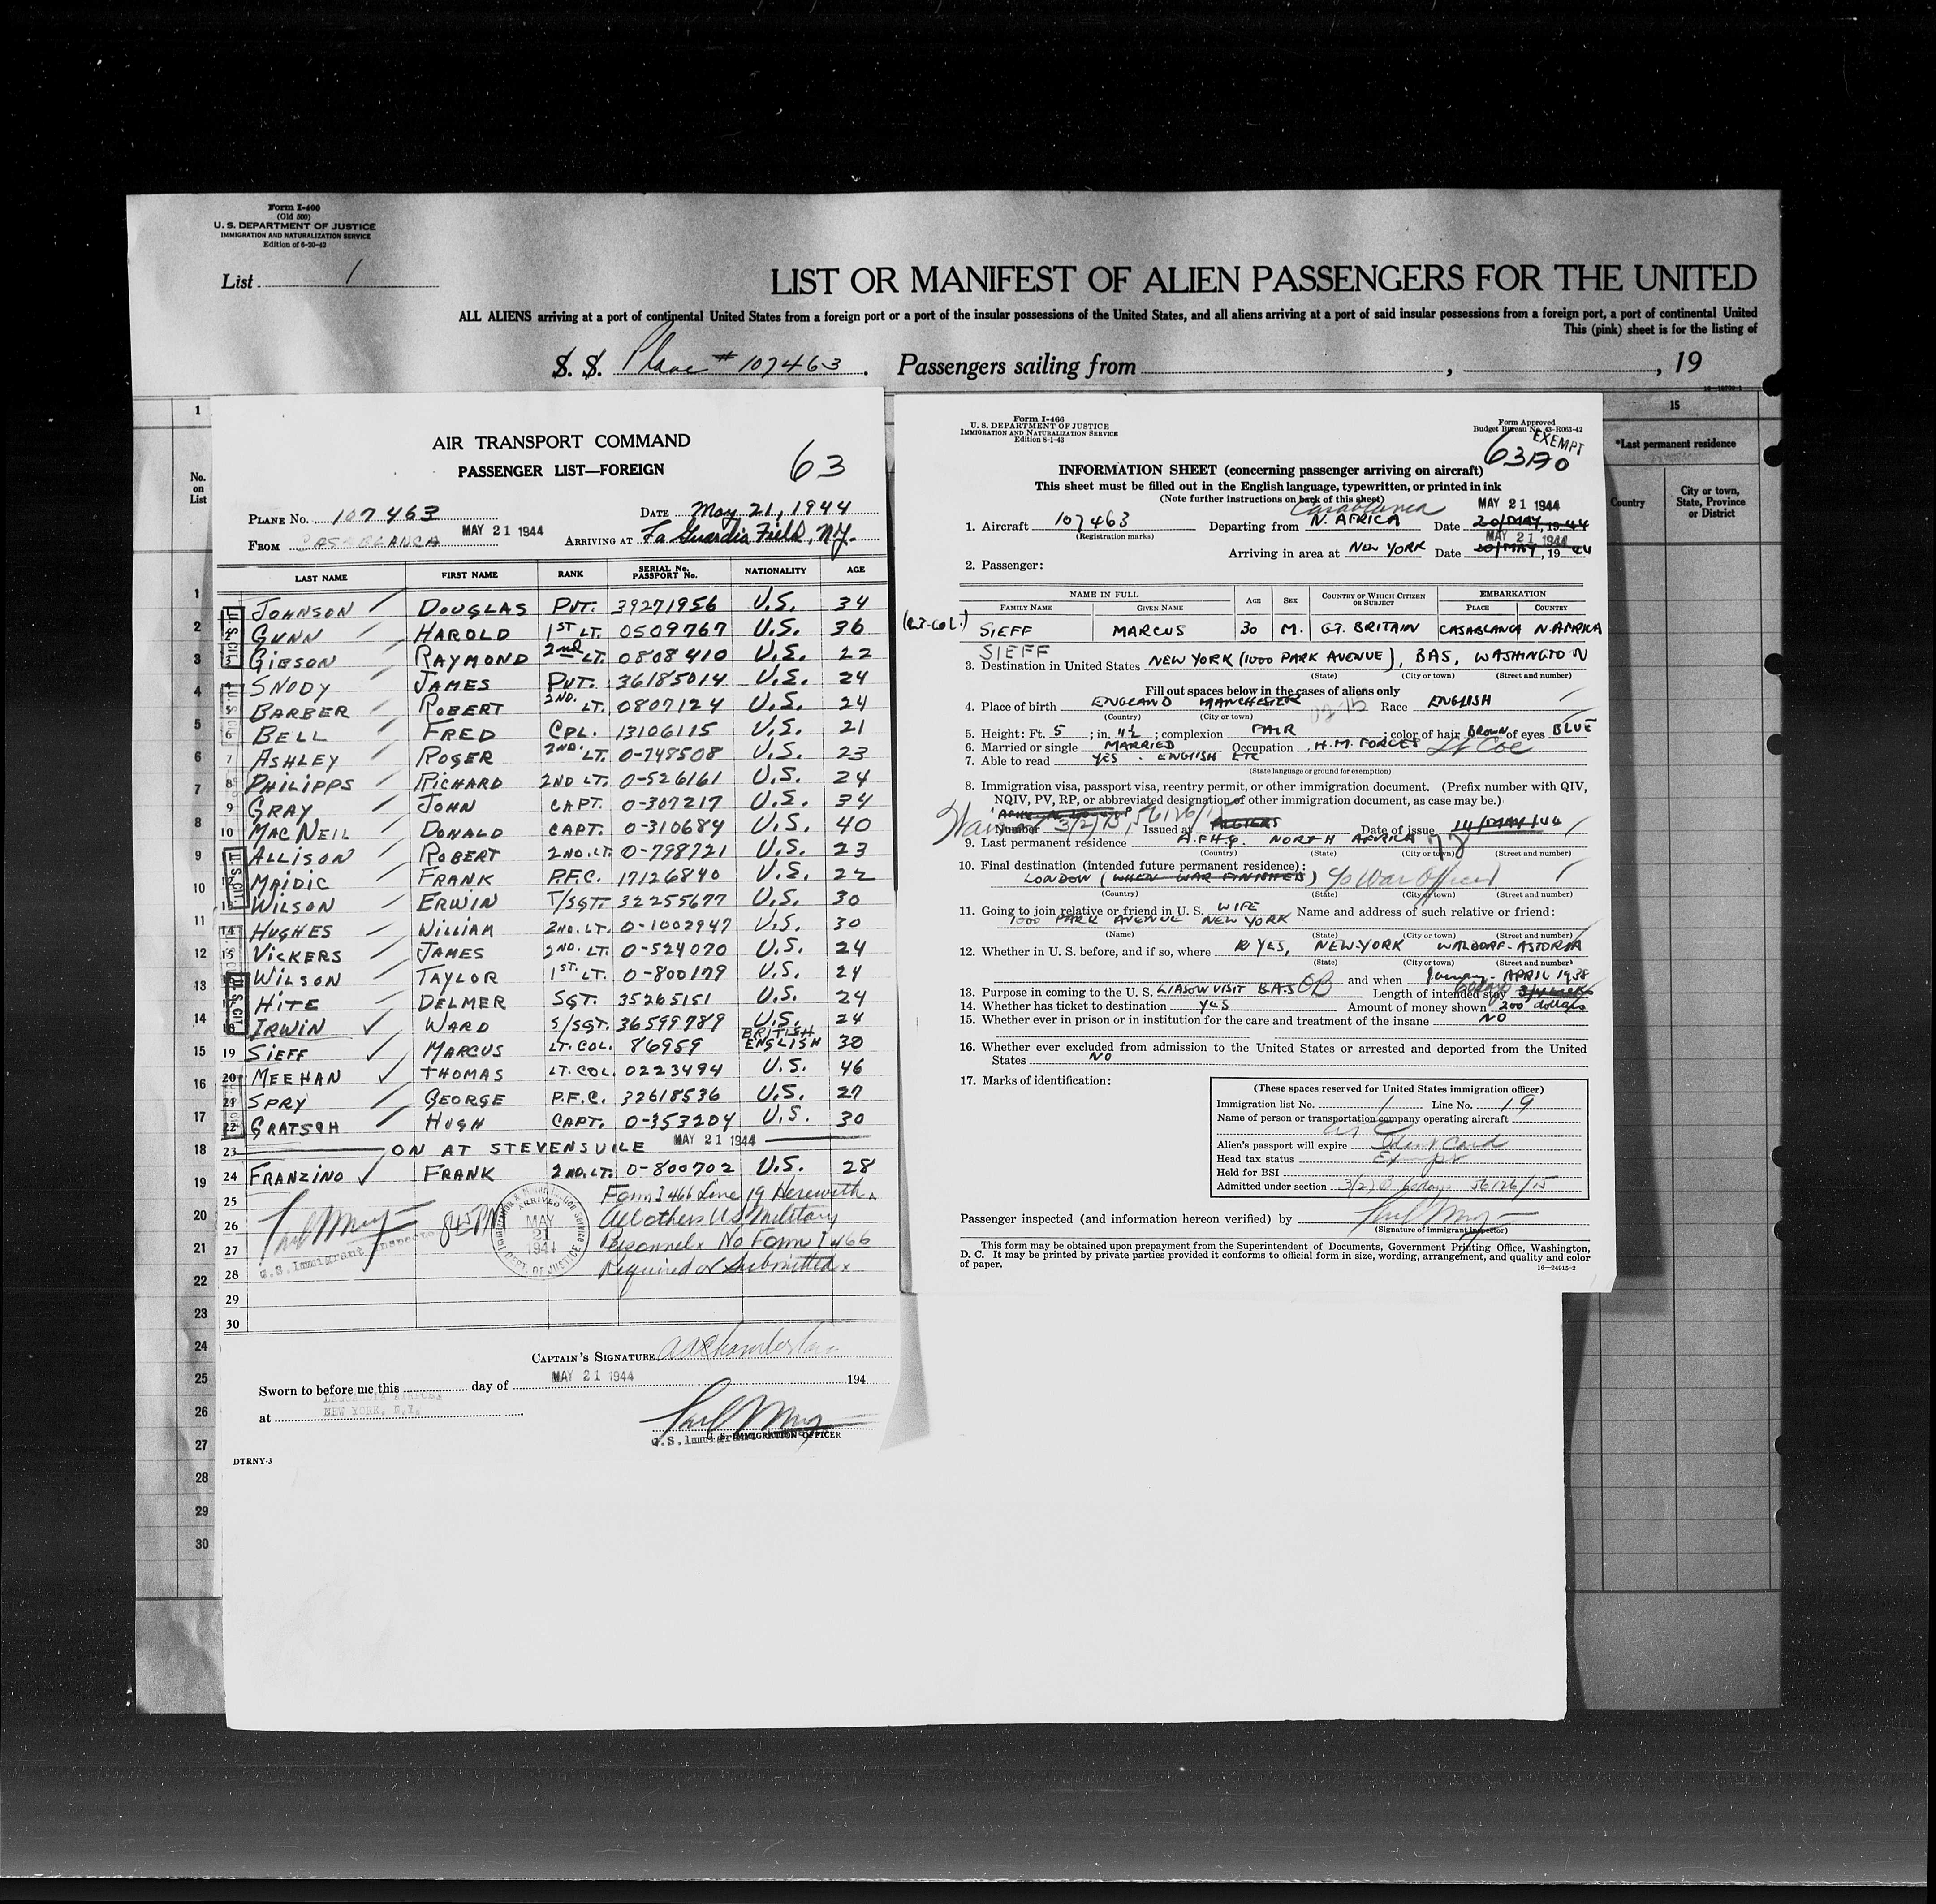 Form I-400
(Old 500)
U. S. DEPARTMENT OF JUSTICE
IMMIGRATION AND NATURALIZATION SERVICE
Edition of 6-20-42
List 1
LIST OR MANIFEST OF ALIEN PASSENGERS FOR THE UNITED
ALL ALIENS arriving at a port of continental United States from a foreign port or a port of the insular possessions of the United States, and all aliens arriving at a port of said insular possessions from a foreign port, a port of continental United
This (pink) sheet is for the listing of
S. S. Plane # 107463. Passengers sailing from , , 19
1
No. on List
AIR TRANSPORT COMMAND
PASSENGER LIST—FOREIGN
63
PLANE No. 107463 DATE May 21, 1944
FROM CASABLANCA MAY 21 1944 ARRIVING AT La Guardia Field, N.Y.
LAST NAME FIRST NAME RANK SERIAL No. PASSPORT No. NATIONALITY AGE
JOHNSON DOUGLAS PVT. 39271956 U.S. 34
GUNN HAROLD 1ST LT. 0509767 U.S. 36
GIBSON RAYMOND 2nd LT. 0808410 U.S. 22
SNODY JAMES PVT. 36185014 U.S. 24
BARBER ROBERT 2ND. LT. 0807124 U.S. 24
BELL FRED CPL. 13106115 U.S. 21
ASHLEY ROGER 2ND. LT. 0-748508 U.S. 23
PHILIPPS RICHARD 2ND LT. 0-526161 U.S. 24
9 GRAY JOHN CAPT. 0-307217 U.S. 34
10 MACNEIL DONALD CAPT. 0-310684 U.S. 40
ALLISON ROBERT 2ND. LT. 0-798721 U.S. 23
MAIDIC FRANK P.F.C. 17126840 U.S. 22
WILSON ERWIN T/SGT. 32255677 U.S. 30
14 HUGHES WILLIAM 2ND. LT. 0-1002947 U.S. 30
15 VICKERS JAMES 2ND. LT. 0-524070 U.S. 24
WILSON TAYLOR 1ST. LT. 0-800179 U.S. 24
HITE DELMER SGT. 35265151 U.S. 24
IRWIN WARD S/SGT. 36599789 U.S. 24
19 SIEFF MARCUS LT. COL. 86959 BRITISH ENGLISH 30
20 MEEHAN THOMAS LT. COL. 0223494 U.S. 46
21 SPRY GEORGE P.F.C. 32618536 U.S. 27
22 GRATSCH HUGH CAPT. 0-353204 U.S. 30
23 ON AT STEVENSVILE MAY 21 1944
24 FRANZINO FRANK 2ND. LT. 0-800702 U.S. 28
25 Form I 466 Line 19 Herewith.
26 All others US Military
27 Personnel. No Form I 466
28 Required or Submitted.
29
30
8:45 PM
U.S. Immigrant Inspector
ARRIVED MAY 21 1944
DEPT. OF JUSTICE
CAPTAIN'S SIGNATURE
Sworn to before me this day of MAY 21 1944 194
at LAGUARDIA AIRPORT
NEW YORK, N.Y.
U. S. IMMIGRATION OFFICER
DTRNY-3
Form I-466
U. S. DEPARTMENT OF JUSTICE
IMMIGRATION AND NATURALIZATION SERVICE
Edition 8-1-43
Form Approved
Budget Bureau No. 43-R063-42
EXEMPT
INFORMATION SHEET (concerning passenger arriving on aircraft)
This sheet must be filled out in the English language, typewritten, or printed in ink
(Note further instructions on back of this sheet)
Casablanca MAY 21 1944
1. Aircraft 107463 Departing from N. AFRICA Date 20/MAY, 1944
(Registration marks) MAY 21 1944
Arriving in area at NEW YORK Date 20/MAY, 1944
2. Passenger:
NAME IN FULL AGE SEX COUNTRY OF WHICH CITIZEN OR SUBJECT EMBARKATION
FAMILY NAME GIVEN NAME PLACE COUNTRY
(LT-COL.) SIEFF MARCUS 30 M. GT. BRITAIN CASABLANCA N. AFRICA
SIEFF
3. Destination in United States NEW YORK (1000 PARK AVENUE), BAS, WASHINGTON
(State) (City or town) (Street and number)
Fill out spaces below in the cases of aliens only
4. Place of birth ENGLAND MANCHESTER Race ENGLISH
(Country) (City or town)
5. Height: Ft. 5 ; in. 11½ ; complexion FAIR ; color of hair BROWN of eyes BLUE
6. Married or single MARRIED Occupation H.M. FORCES Lt Col
7. Able to read YES . ENGLISH ETC
(State language or ground for exemption)
8. Immigration visa, passport visa, reentry permit, or other immigration document. (Prefix number with QIV,
NQIV, PV, RP, or abbreviated designation of other immigration document, as case may be.)
Number 3/2/15, Issued at ALGIERS Date of issue 14/MAY/44
9. Last permanent residence A.F.H.Q. NORTH AFRICA
(Country) (State) (City or town) (Street and number)
10. Final destination (intended future permanent residence):
LONDON (WHEN WAR FINISHED) c/o War Office
(Country) (State) (City or town) (Street and number)
11. Going to join relative or friend in U. S. WIFE Name and address of such relative or friend:
1000 PARK AVENUE NEW YORK
(Name) (State) (City or town) (Street and number)
12. Whether in U. S. before, and if so, where YES, NEW-YORK WALDORF-ASTORIA
(State) (City or town) (Street and number)
and when January - APRIL 1938
13. Purpose in coming to the U. S. LIASON VISIT BAS Length of intended stay 60 days
14. Whether has ticket to destination YES Amount of money shown 200 dollars
15. Whether ever in prison or in institution for the care and treatment of the insane NO
16. Whether ever excluded from admission to the United States or arrested and deported from the United
States NO
17. Marks of identification:
(These spaces reserved for United States immigration officer)
Immigration list No. 1 Line No. 19
Name of person or transportation company operating aircraft
Alien's passport will expire Ident Card
Head tax status Exempt
Held for BSI
Admitted under section 3(2) 60 days 56126/15
Passenger inspected (and information hereon verified) by
(Signature of immigrant inspector)
This form may be obtained upon prepayment from the Superintendent of Documents, Government Printing Office, Washington,
D. C. It may be printed by private parties provided it conforms to official form in size, wording, arrangement, and quality and color
of paper.
16—24915-2
15
*Last permanent residence
Country City or town, State, Province or District